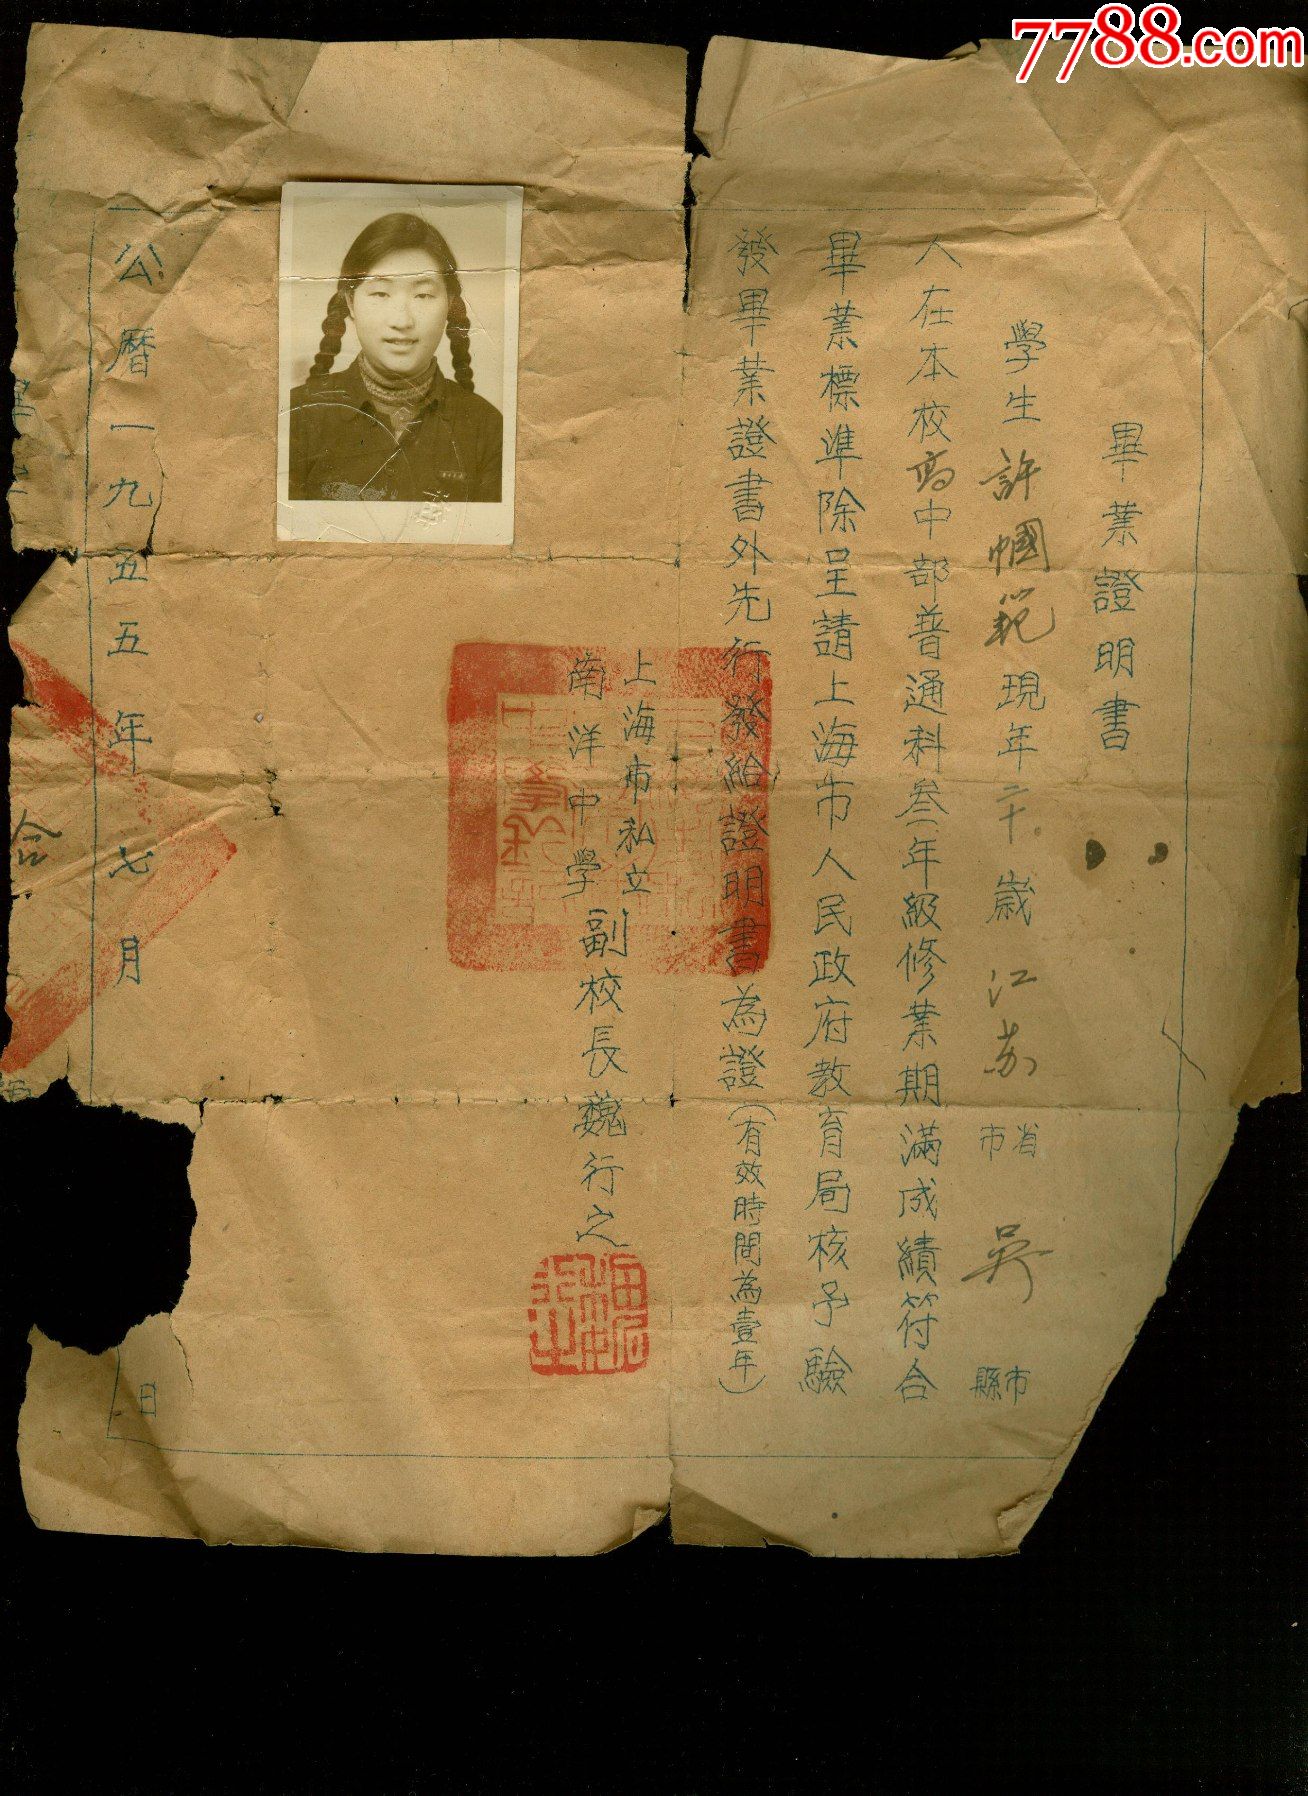 7788.com
畢業證明書
學生許幗範現年二十歲江蘇省市吳市縣
人在本校高中部普通科叁年級修業期滿成績符合
畢業標準除呈請上海市人民政府教育局核予驗
發畢業證書外先行發給證明書為證（有效時間為壹年）
上海市私立
南洋中學
副校長魏行之
公曆一九五五年七月日